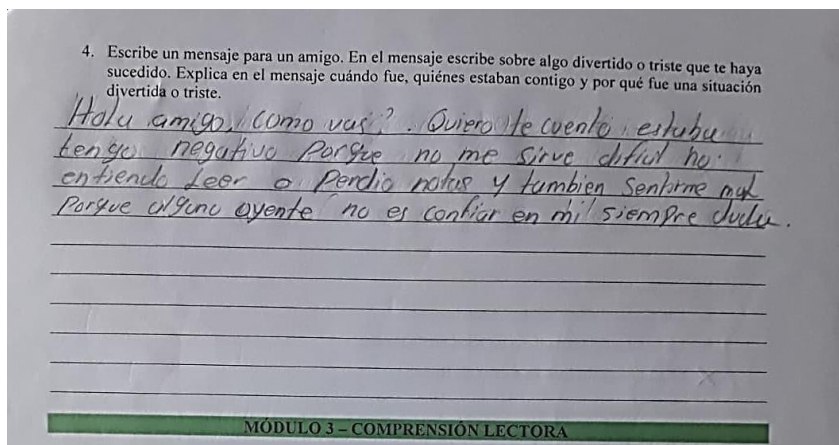 4. Escribe un mensaje para un amigo. En el mensaje escribe sobre algo divertido o triste que te haya
sucedido. Explica en el mensaje cuándo fue, quiénes estaban contigo y por qué fue una situación
divertida o triste.
Hola amigo, como vas?. Quiero te cuento, estaba
tengo negativo Porque no me sirve dificil no.
entiendo Leer o Perdio notas y tambien Sentirme mal
Porque alguno oyente no es confiar en mi siempre duda.
MÓDULO 3 – COMPRENSIÓN LECTORA